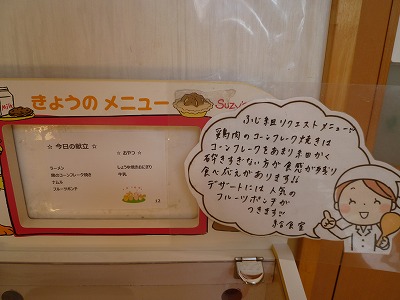 きょうの メニュー
Milk
☆ 今日の献立 ☆
☆ おやつ ☆
ラーメン
鶏のコーンフレーク焼き
ナムル
フルーツポンチ
しょうゆ焼きおにぎり
牛乳
ふじ組リクエストメニュー♡
鶏肉のコーンフレーク焼きは
コーンフレークをあまり細かく
砕きすぎない方が食感が残り
食べ応えがあります!!
デザートには人気の
フルーツポンチが
つきます!!
給食室